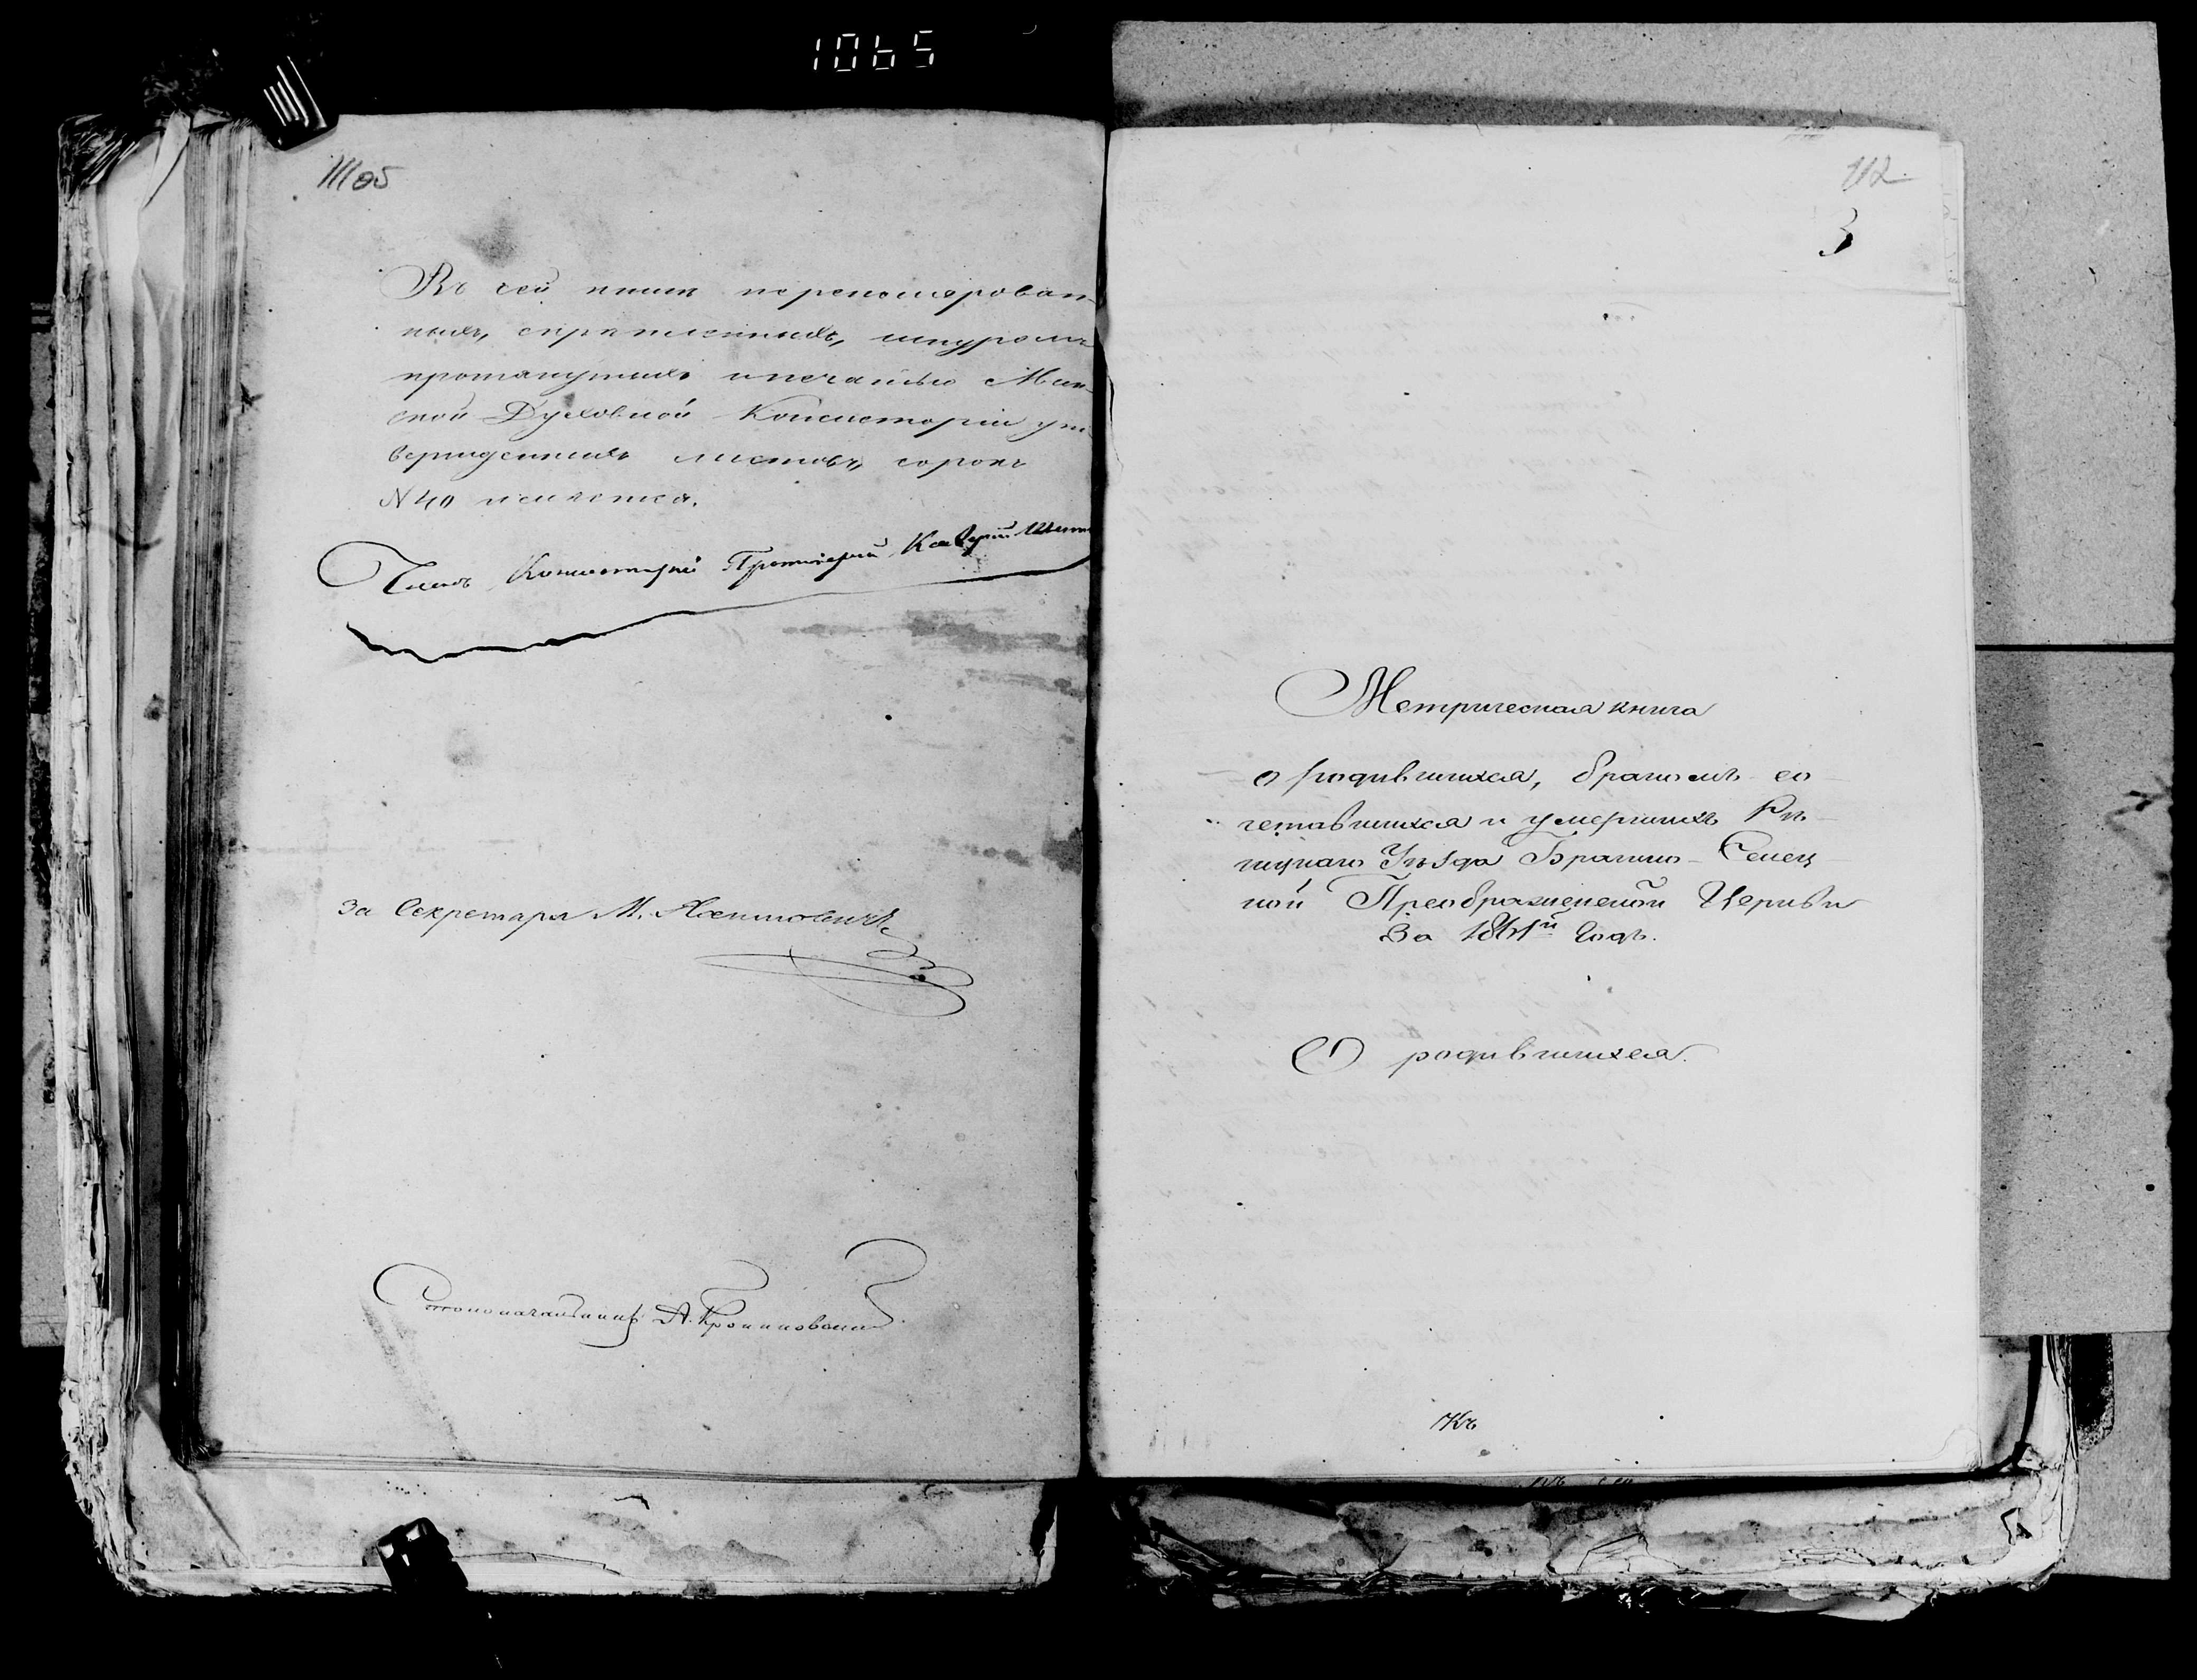 1065
111об
Въ сей книгѣ перенумерован-
ныхъ, скрѣпленныхъ, шнуромъ
протянутыхъ и печатью Мин-
ской Духовной Консисторіи ут-
вержденныхъ листовъ, сорокъ
N 40 имѣется.
Членъ Консисторіи Протоіерей
За Секретаря М.
Столоначальникъ А.
112
3
Метрическая книга
о родившихся, бракомъ со
четавшихся и умершихъ Рѣ
чицкаго Уѣзда Брагино-Селец
кой Преображенской Церкви
За 1861й Годъ.
О родившихся.